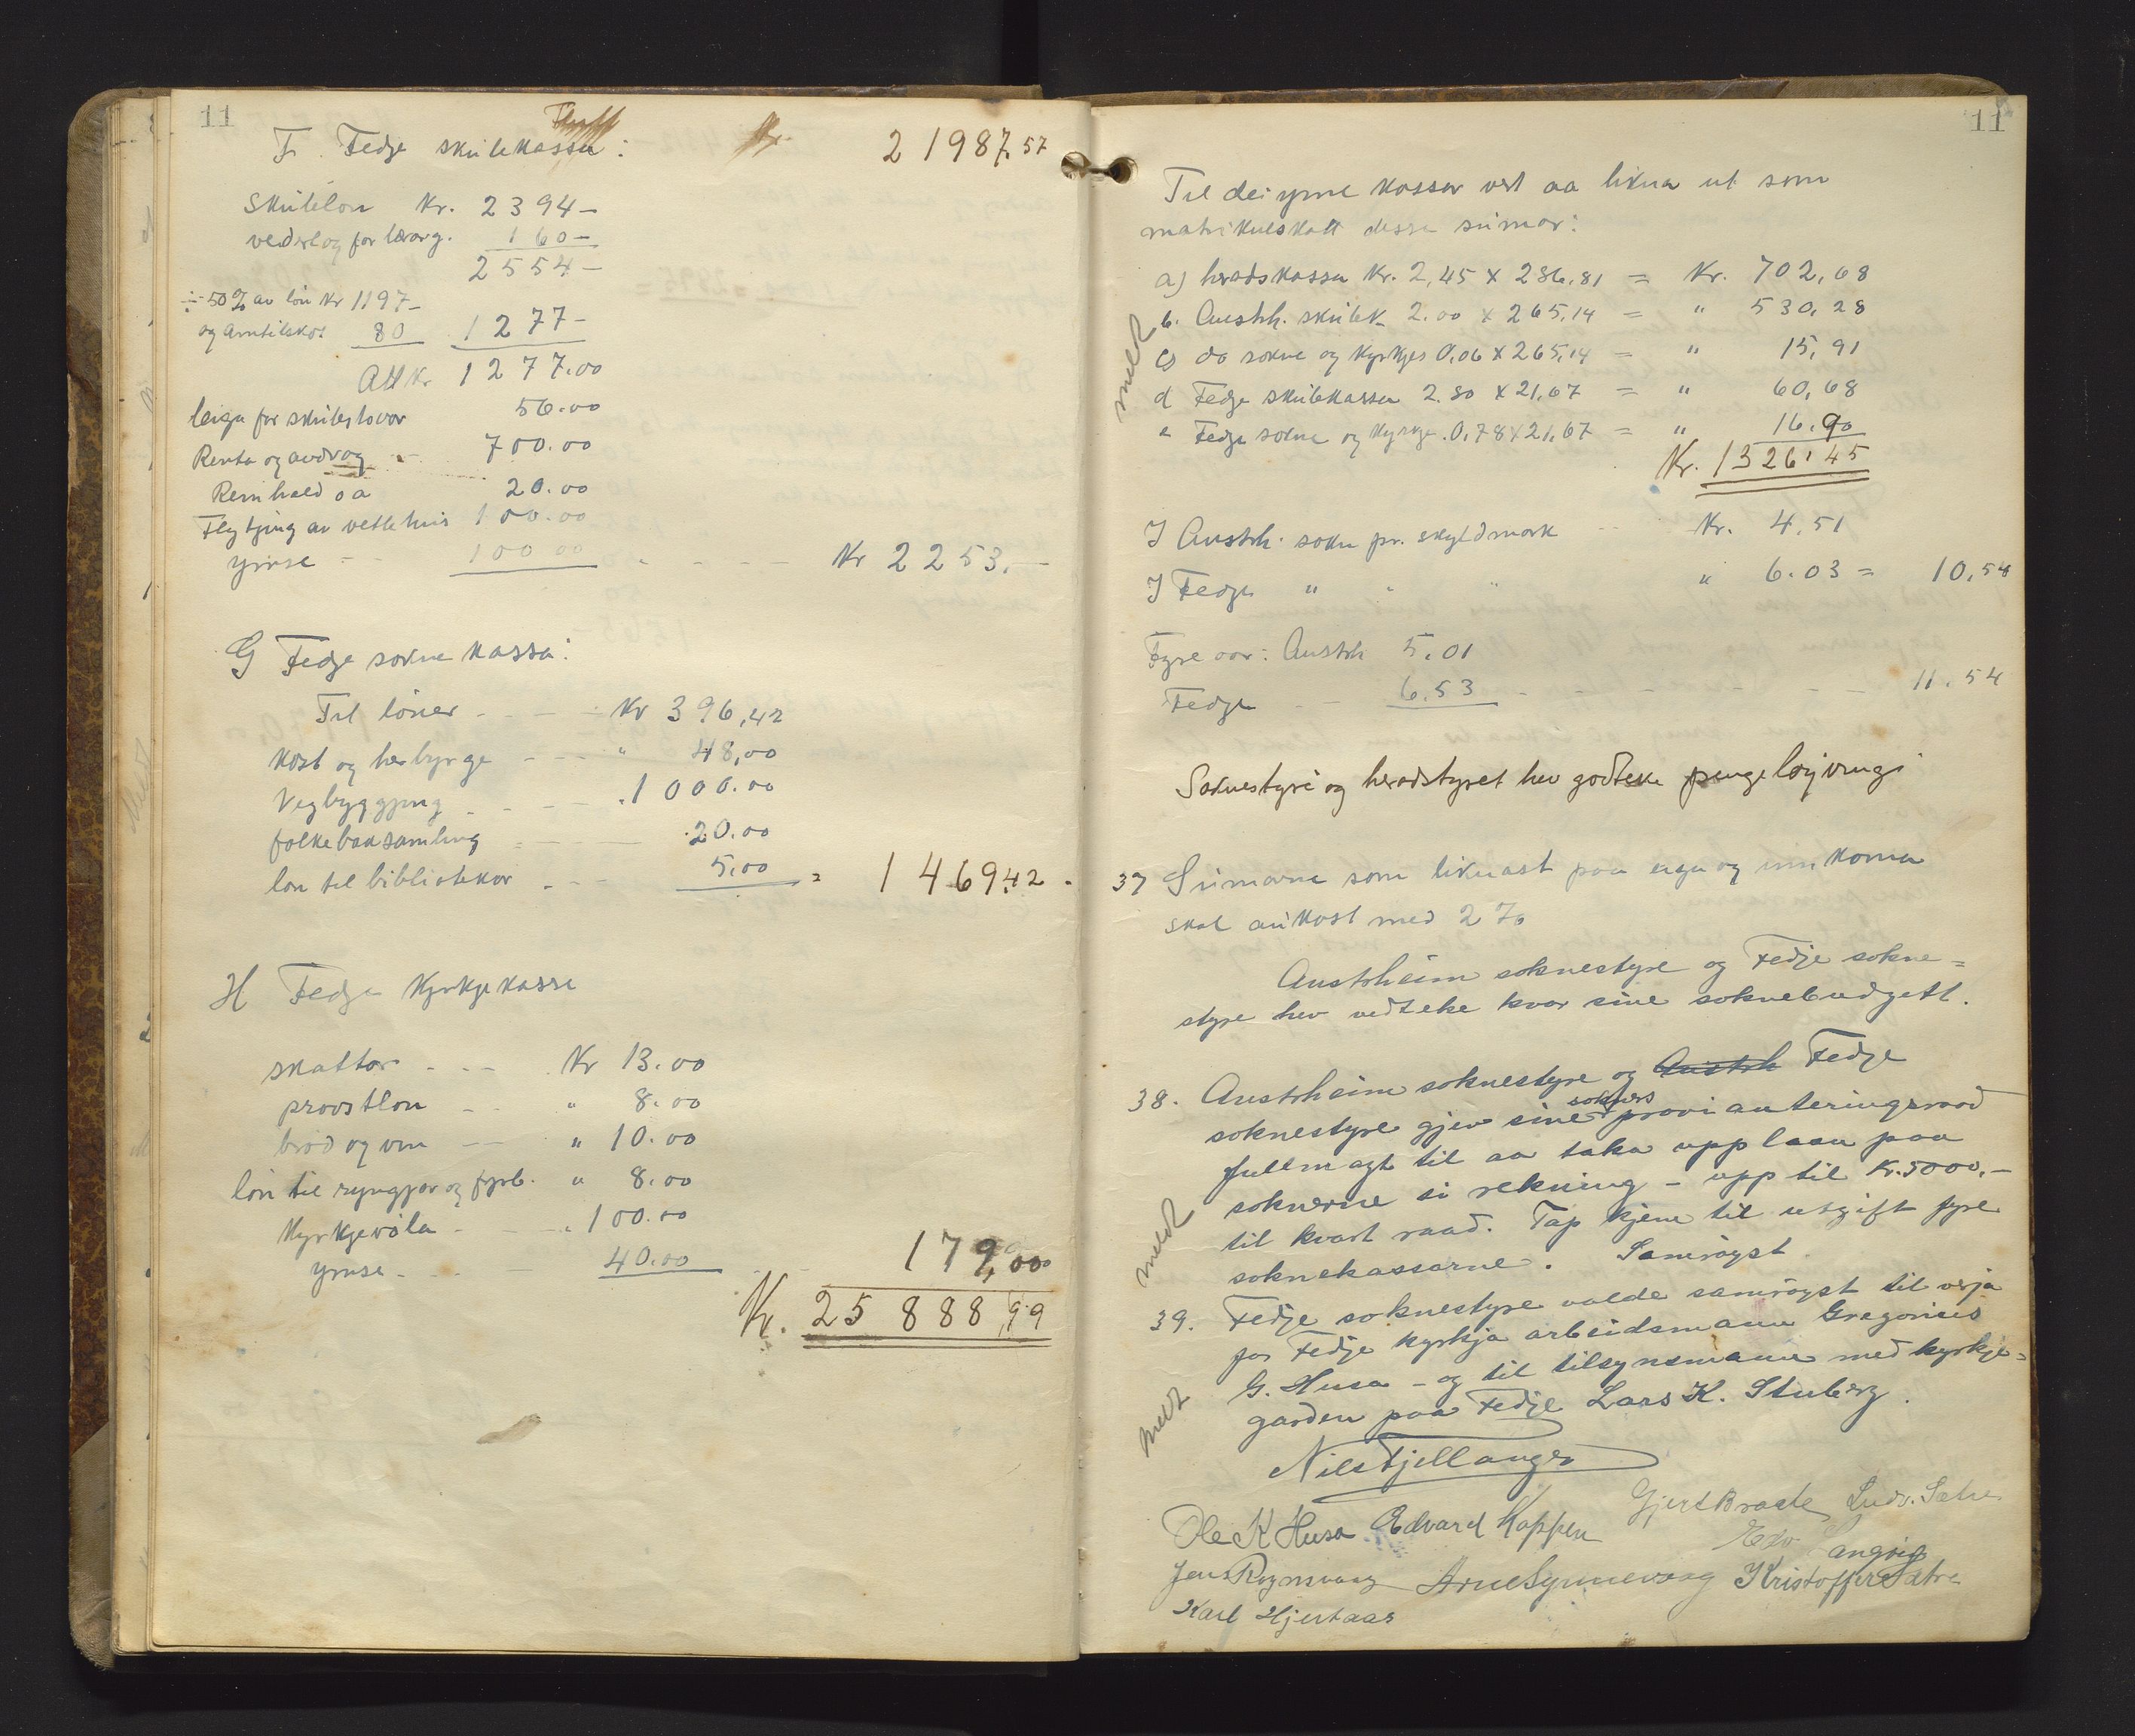 11
F. Fedje skulekassa: 21987,57
Skulelön Kr. 2394-
vederlog for lærarg. 160-
2554-
÷ 50% av lön Kr 1197-
og amtilskot 80 1277-
Att Kr. 1277.00
leiga for skulestovor 56.00
Renta og avdrag 700.00
Reinhald o a 20.00
Flytjing av vetlehus 100.00
ymse 100 00 Kr 2253.-
G Fedje soknekassa:
Til löner Kr 396,42
Kost og herbyrge " 48,00
Vegbyggjing 1000.00
folkeboksamling 20.00
lön til bibliotekar 5,00 = 1469,42
H Fedje Kyrkjekassa
skattar Kr 13.00
provstlön " 8.00
bröd og vin " 10.00
lön til ryngjar og fyrb. " 8.00
Kyrkjevöla " 100.00
ymse 40.00 179,00
Kr. 25888,99
11
Til dei ymse kassor vert aa likna ut som
matrikulskatt desse sumar:
a) heradskassa Kr. 2,45 x 286,81 = Kr. 702,68
b. Austrh. skulek. 2.00 x 265,14 = " 530,28
c) do sokne og kyrkjek 0,06 x 265,14 = " 15,91
d Fedje skulekassa 2.80 x 21,67 = " 60,68
e Fedje sokne og kyrkje. 0,78 x 21,67 = " 16.90
Kr. 1326,45
meldt
I Austrh. sokn pr. skyldmark Kr. 4.51
I Fedje " " " " 6.03 = 10,54
Fyre aar: Austrh 5,01
Fedje 6.53 11.54
Soknestyri og heradstyret hev godteke pengeløyvingi
37 Sumarne som liknast paa eiga og innkoma
skal aukast med 2 %
Austrheim soknestyre og Fedje sokne=
styre hev vedteke kvar sine soknebudgett.
38. Austrheim soknestyre og Austrh Fedje
soknestyre gjev sine sokners provianteringsraad
fullmagt til aa taka upp laan paa
soknerne si rekning - upp til Kr. 5000,-
til kvart raad. Tap kjem til utgift fyre
soknekassarne. Samröyst
meldt
39. Fedje soknestyre valde samröyst til verja
for Fedje kyrkja arbeidsmann Gregorius
G. Husa - og til tilsynsmann med kyrkje=
garden paa Fedje Lars K. Stuberg.
meldt
Nils Fjellanger
Ole K Husa Edvard Hoppen Gjert Braate Ludv. Sætre
Edv Langöig
Jens Rognvaag Arne Synnevaag Kristoffer Sætre
Karl Hjertaas